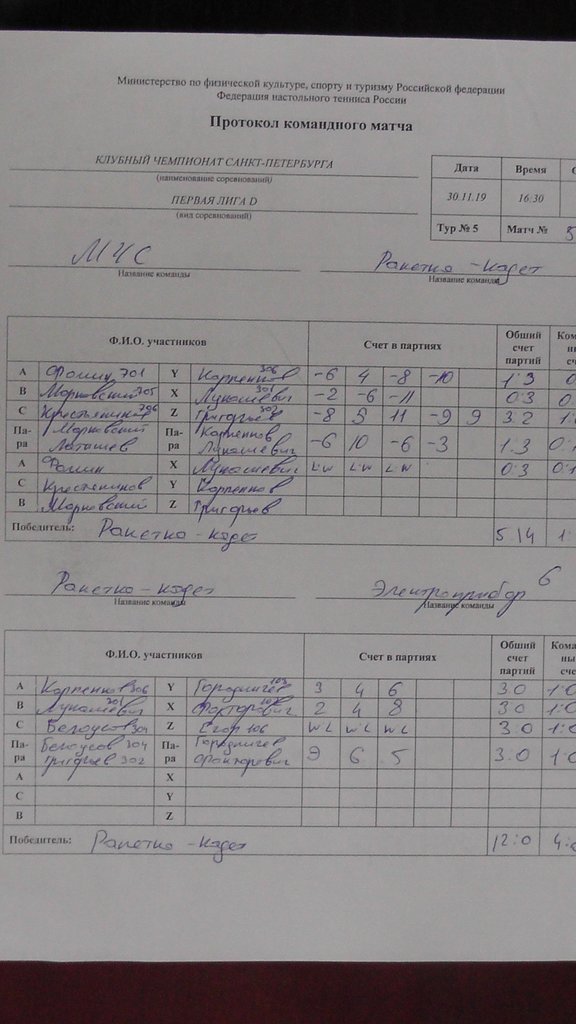 Министерство по физической культуре, спорту и туризму Российской федерации
Федерация настольного тенниса России
Протокол командного матча
КЛУБНЫЙ ЧЕМПИОНАТ САНКТ-ПЕТЕРБУРГА
(наименование соревнований)
ПЕРВАЯ ЛИГА D
(вид соревнований)
Дата Время
30.11.19 16:30
Тур № 5 Матч № 5
МЧС Ракетка - кадет
Название команды Название команды
Ф.И.О. участников Счет в партиях Общий счет партий
A Фомин 701 Y Карпенков 306 -6 4 -8 -10 1:3 0
B Марковский 705 X Лукашевич 301 -2 -6 -11 0:3 0
C Крестьянинов 706 Z Григорьев 302 -8 5 11 -9 9 3:2 1:
Па-ра Марковский Па-ра Карпенков -6 10 -6 -3 1:3 0:
Латышев Лукашевич
A Фомин X Лукашевич L:W L:W L:W 0:3 0:
C Крестьянинов Y Карпенков
B Марковский Z Григорьев
Победитель: Ракетка - кадет 5:14 1:
Ракетка - кадет Электроприбор 6
Название команды Название команды
Ф.И.О. участников Счет в партиях Общий счет партий
A Карпенков 306 Y Городничев 103 3 4 6 3:0 1:0
B Лукашевич 301 X 2 4 8 3:0 1:0
C Белоусов 304 Z Егор 106 W:L W:L W:L 3:0 1:0
Па-ра Белоусов 304 Па-ра Городничев 9 6 5 3:0 1:0
Григорьев 302
A X
C Y
B Z
Победитель: Ракетка - кадет 12:0 4:0